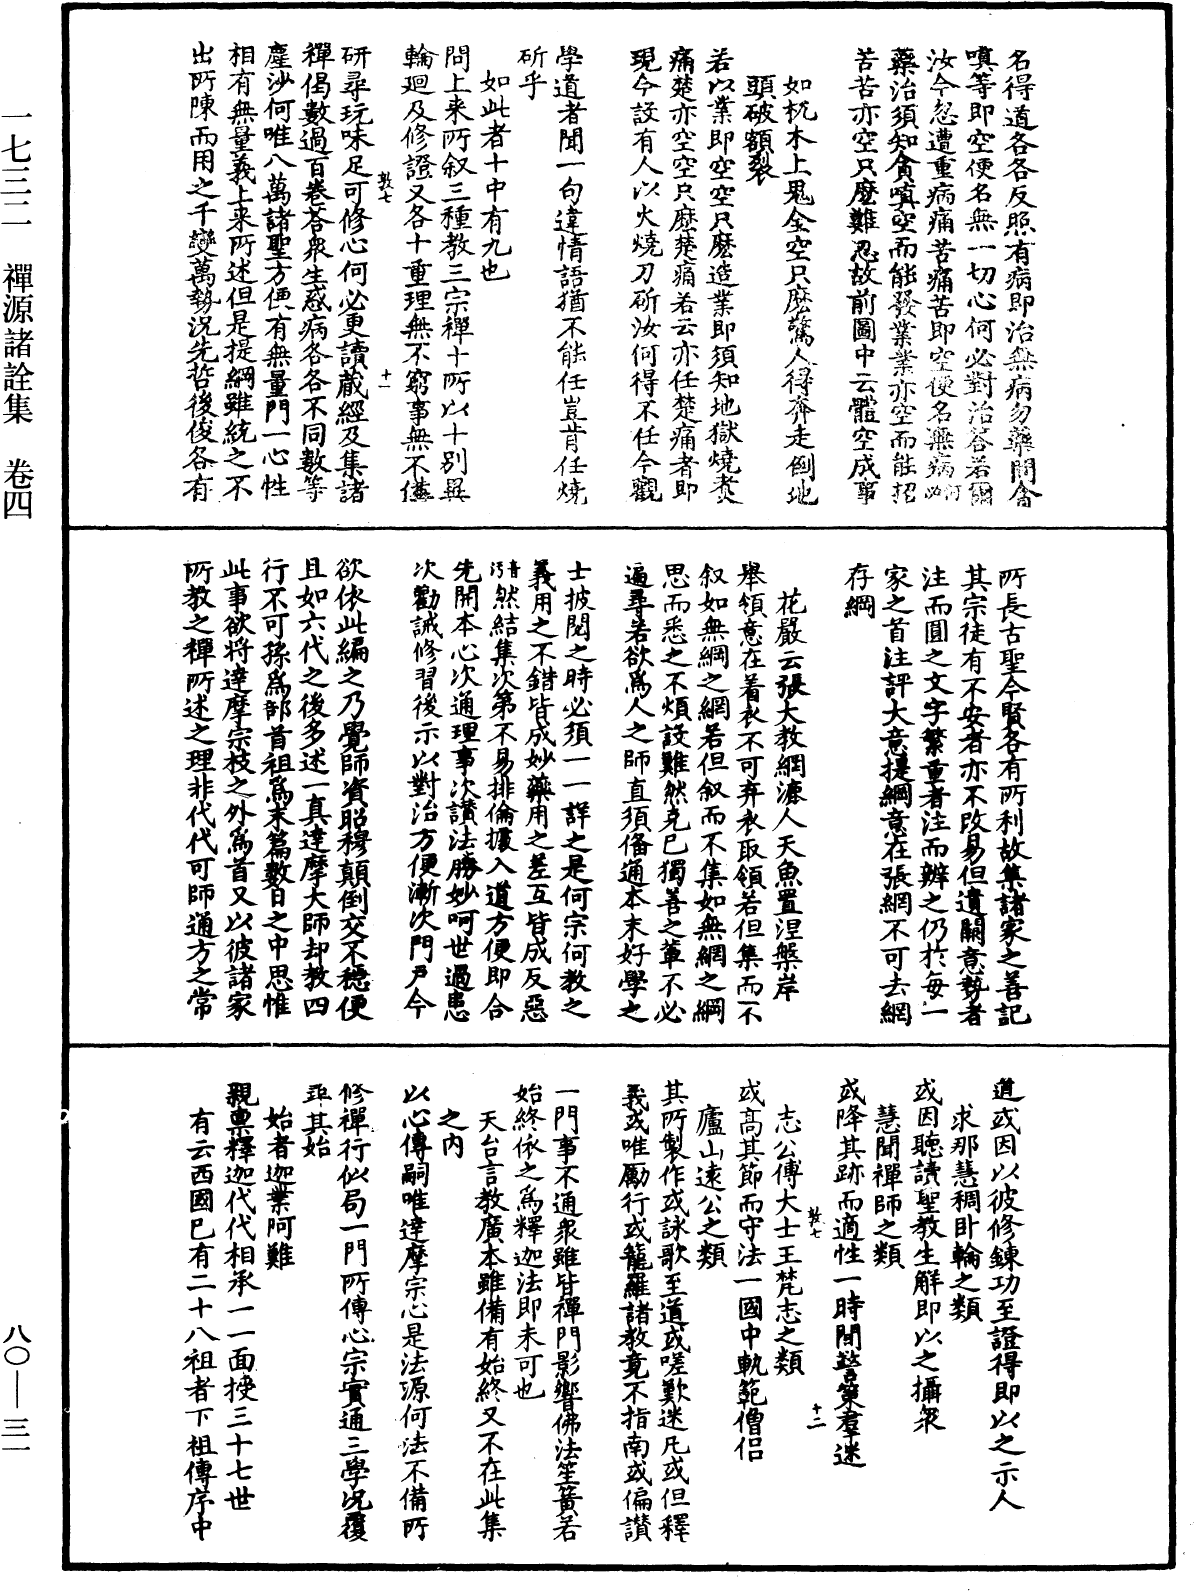 名得道各各反照有病即治無病勿藥問貪
嗔等即空便名無一切心何必對治荅若爾
汝今忽遭重病痛苦痛苦即空便名無病何必
藥治須知貪嗔空而能發業業亦空而能招
苦苦亦空只麽難忍故前圖中云體空成事
如杌木上鬼全空只麽驚人得奔走倒地
頭破額裂
若以業即空空只麽造業即須知地獄燒煑
痛楚亦空空只麽楚痛若云亦任楚痛者即
現今設有人以火燒刀斫汝何得不任今觀
學道者聞一句違情語猶不能任豈肯任燒
斫乎
如此者十中有九也
問上來所叙三種教三宗禪十所以十別異
輪廻及修證又各十重理無不窮事無不備
研尋玩味足可修心何必更讀藏經及集諸
禪偈數過百卷荅衆生惑病各各不同數等
塵沙何唯八萬諸聖方便有無量門一心性
相有無量義上來所述但是提綱雖統之不
出所陳而用之千變萬勢況先哲後俊各有
敦七
十一
所長古聖今賢各有所利故集諸家之善記
其宗徒有不安者亦不改易但遺闕意勢者
注而圓之文字繁重者注而辨之仍於每一
家之首注評大意提綱意在張網不可去網
存綱
花嚴云張大教網漉人天魚置涅槃岸
舉領意在着衣不可弃衣取領若但集而不
叙如無綱之網若但叙而不集如無網之綱
思而悉之不煩設難然克己獨善之輩不必
遍尋若欲爲人之師直須俻通本末好學之
士披閱之時必須一一詳之是何宗何教之
義用之不錯皆成妙藥用之差互皆成反惡
然結集次第不易排倫據入道方便即合
先開本心次通理事次讃法勝妙呵世過患
次勸誡修習後示以對治方便漸次門戶今
欲依此編之乃覺師資昭穆顛倒交不穩便
且如六代之後多述一真達摩大師却教四
行不可孫爲部首祖爲末篇數日之中思惟
此事欲將達摩宗枝之外爲首又以彼諸家
所教之禪所述之理非代代可師通方之常
道或因以彼修鍊功至證得即以之示人
求那慧稠卧輪之類
或因聽讀聖教生解即以之攝衆
慧聞禪師之類
或降其跡而適性一時間警策羣迷
志公傅大士王梵志之類
或高其節而守法一國中軌範僧侶
廬山遠公之類
其所製作或詠歌至道或嗟歎迷凡或但釋
義或唯勵行或籠羅諸教竟不指南或偏讃
一門事不通衆雖皆禪門影響佛法笙簧若
始終依之爲釋迦法即未可也
天台言教廣本雖備有始終又不在此集
之內
以心傳嗣唯達摩宗心是法源何法不備所
修禪行似局一門所傳心宗實通三學況覆
尋其始
始者迦葉阿難
親稟釋迦代代相承一一面授三十七世
有云西國已有二十八祖者下祖傳序中
敦七
十二
一七三二　禪源諸詮集　卷四
八〇—三一